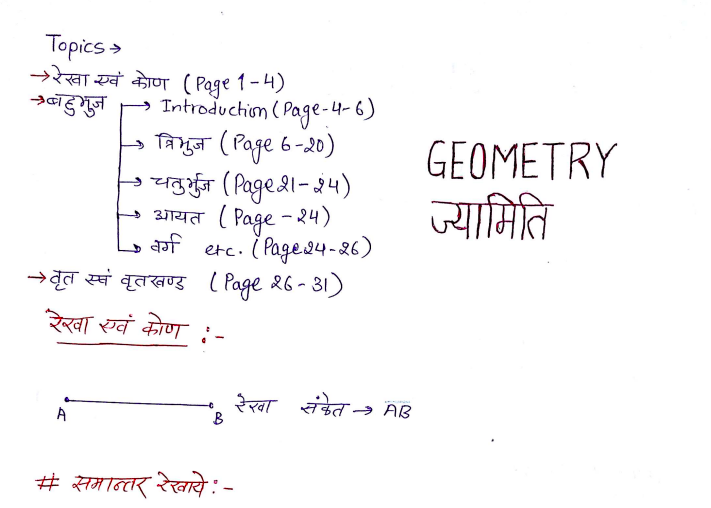 Topics →
→ रेखा एवं कोण (Page 1-4)
→ बहुभुज → Introduction (Page-4-6)
→ त्रिभुज (Page 6-20)
→ चतुर्भुज (Page 21-24)
→ आयत (Page - 24)
→ वर्ग etc. (Page 24-26)
→ वृत एवं वृतखण्ड (Page 26-31)
GEOMETRY
ज्यामिति
रेखा एवं कोण :-
A B रेखा संकेत → AB
# समान्तर रेखाये :-